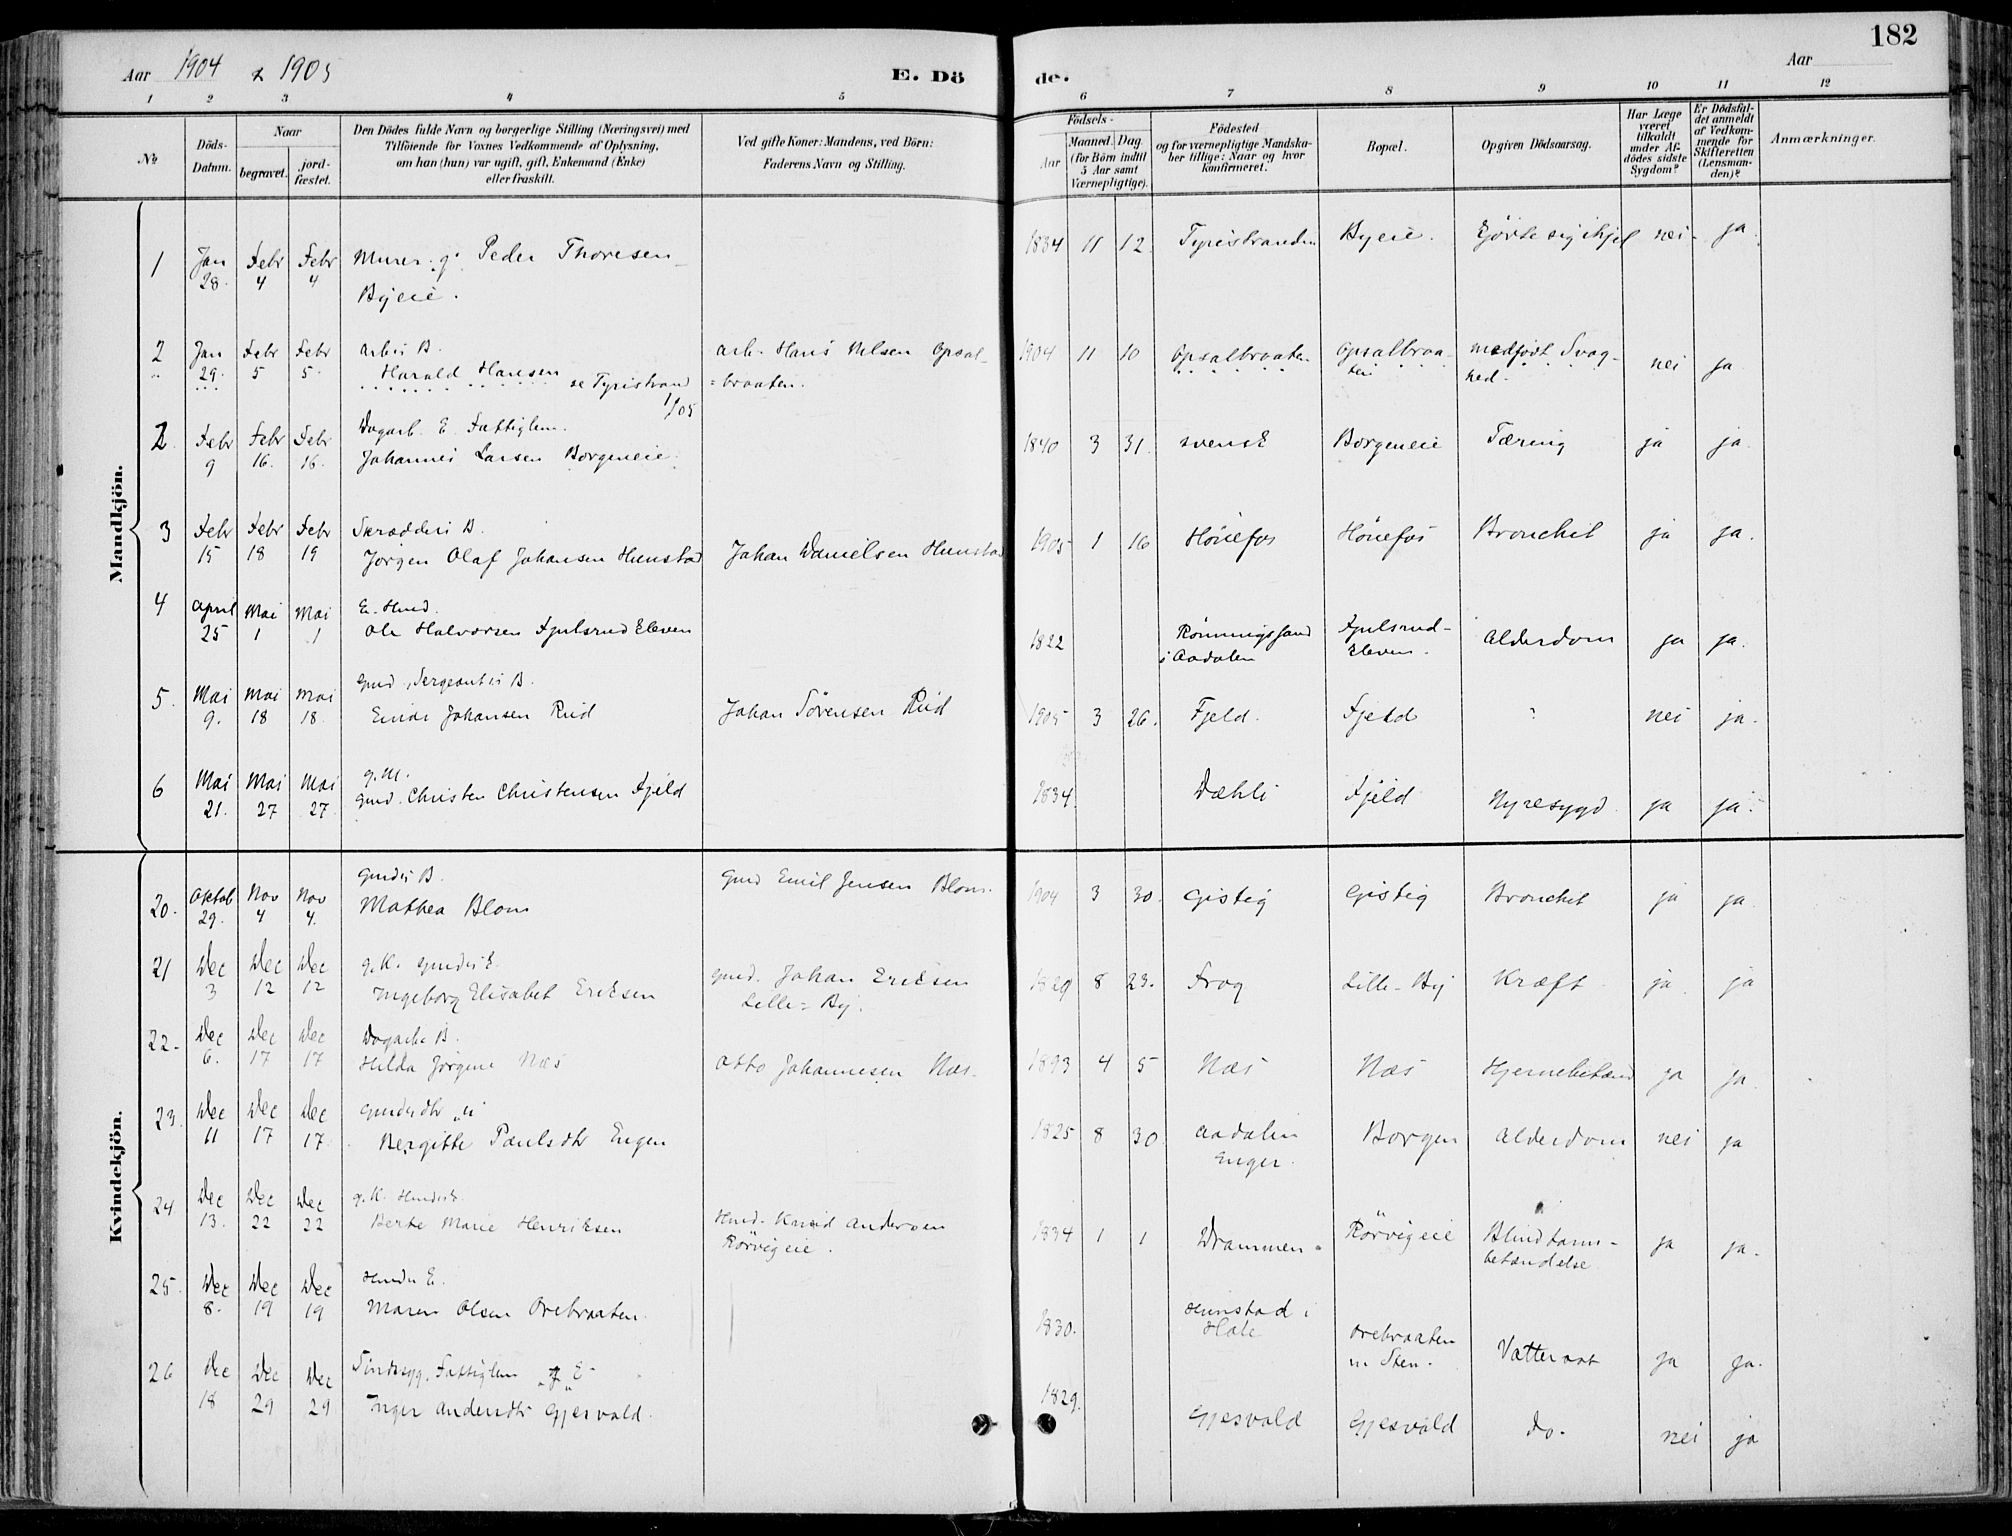 182
Aar 1904 & 1905
E. Dö
de.
Aar
1 2 3 4 5 6 7 8 9 10 11 12
No
Döds-Datum.
Naar
begravet. jordfæstet.
Den Dödes fulde Navn og borgerlige Stilling (Næringsvei) med
Tilföiende for Voxnes Vedkommende af Oplysning,
om han (hun) var ugift, gift, Enkemand (Enke)
eller fraskilt.
Ved gifte Koner: Mandens, ved Börn:
Faderens Navn og Stilling.
Födsels-
Aar Maaned. Dag.
(for Börn indtil
5 Aar samt
Værnepligtige).
Födested
og for værnepligtige Mandskaber tillige: Naar og hvor
konfirmeret.
Bopæl.
Opgiven Dödsaarsag.
Har Læge
været
tilkaldt
under Afdödes sidste
Sygdom?
Er Dödsfaldet anmeldt
af Vedkommende for
Skifteretten
(Lensmanden)?
Anmærkninger.
Mandkjön.
1 Jan 28. Febr 4 Febr 4 Murer. g. Peder Thoresen Byeie. 1834 11 12. Tyristranden Byeie. Gjorte sig ihjel nei- ja.
2 Jan 29. Febr 5 Febr 5. Arb's B. Harald Hansen se Tyristrand 1/05 Arb. Hans Nilsen Opsal=braaten. 1904 11 10 Opsalbraaten Opsalbraaten medfödt Svaghed. nei ja.
2. Febr 9 Febr 16. Febr 16. Dagarb. E. Fattiglem. Johannes Larsen Borgeneie. 1840 3 31. svensk Borgeneie Tæring ja ja.
3 Febr 15 Febr 18 Febr 19 Skrædders B. Jörgen Olaf Johansen Hunstad Johan Danielsen Hunstad 1905 1 16 Hönefos Hönefos Bronchit ja ja.
4 April 25 Mai 1 Mai 1 E. Hmd. Ole Halvorsen Fjulsrud Eleven 1822 Rönningssand i Aadalen Fjulsrud-Eleven. Alderdom ja ja.
5. Mai 9. Mai 18 Mai 18. Gmd, Sergeants B. Einar Johansen Rud Johan Sörensen Rud 1905 3 26. Fjeld. Fjeld ? nei ja.
6 Mai 21. Mai 27 Mai 27. g.M. Gmd. Christen Christensen Fjeld 1834 Dæhli Fjeld Nyresygd. ja ja.
Kvindekjön.
20. Oktob 29. Nov 4 Nov 4. Gmds B. Mathea Blom Gmd Emil Jensen Blom. 1904 3 30. Gistig Gistig Bronchit ja ja.
21 Dec 3 Dec 12 Dec 12 g.K. Gmds E. Ingeborg Elisabet Eriksen Gmd. Johan Eriksen Lille-By. 1829 8 23. Frog Lille-By Kræft ja. ja
22. Dec 6. Dec 17 Dec 17 Dagarbs B. Hilda Jörgine Næs Otto Johannesen Næs. 1893 4 5 Næs Næs Hjernebetænd ja ja.
23. Dec 11 Dec 17 Dec 17. Gmdsdtr "u" Bergitte Paulsdtr Engen 1825 8 30 Aadalen Enger. Borgen Alderdom nei ja
24 Dec 13. Dec 22 Dec 22 g.K. Hmds E. Berte Marie Henriksen Hmd. Knud Andersen Rörvigeie. 1834 1 1 Drammen. Rörvigeie Blindtarmbetændelse ja ja.
25. Dec 8. Dec 19 Dec 19 Hmds E. Maren Olsen Orebraaten. 1830. Hunstad i Hole Orebraaten u. Sten. Vattersot ja ja.
26 Dec 18 Dec 29 Dec 29 Sindssyg. Fattiglem E. Inger Andersdtr Gjesvold. 1829. Gjesvold Gjesvold do. nei ja